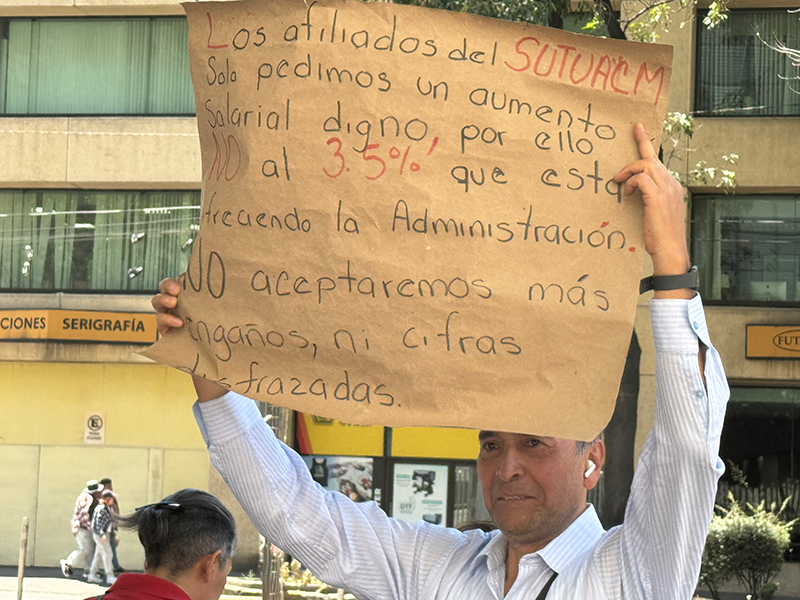 Los afiliados del SUTUACM
Solo pedimos un aumento
Salarial digno, por ello
NO al 3.5% que esta
ofreciendo la Administración.
NO aceptaremos más
engaños, ni cifras
disfrazadas.
CIONES SERIGRAFÍA
FUT